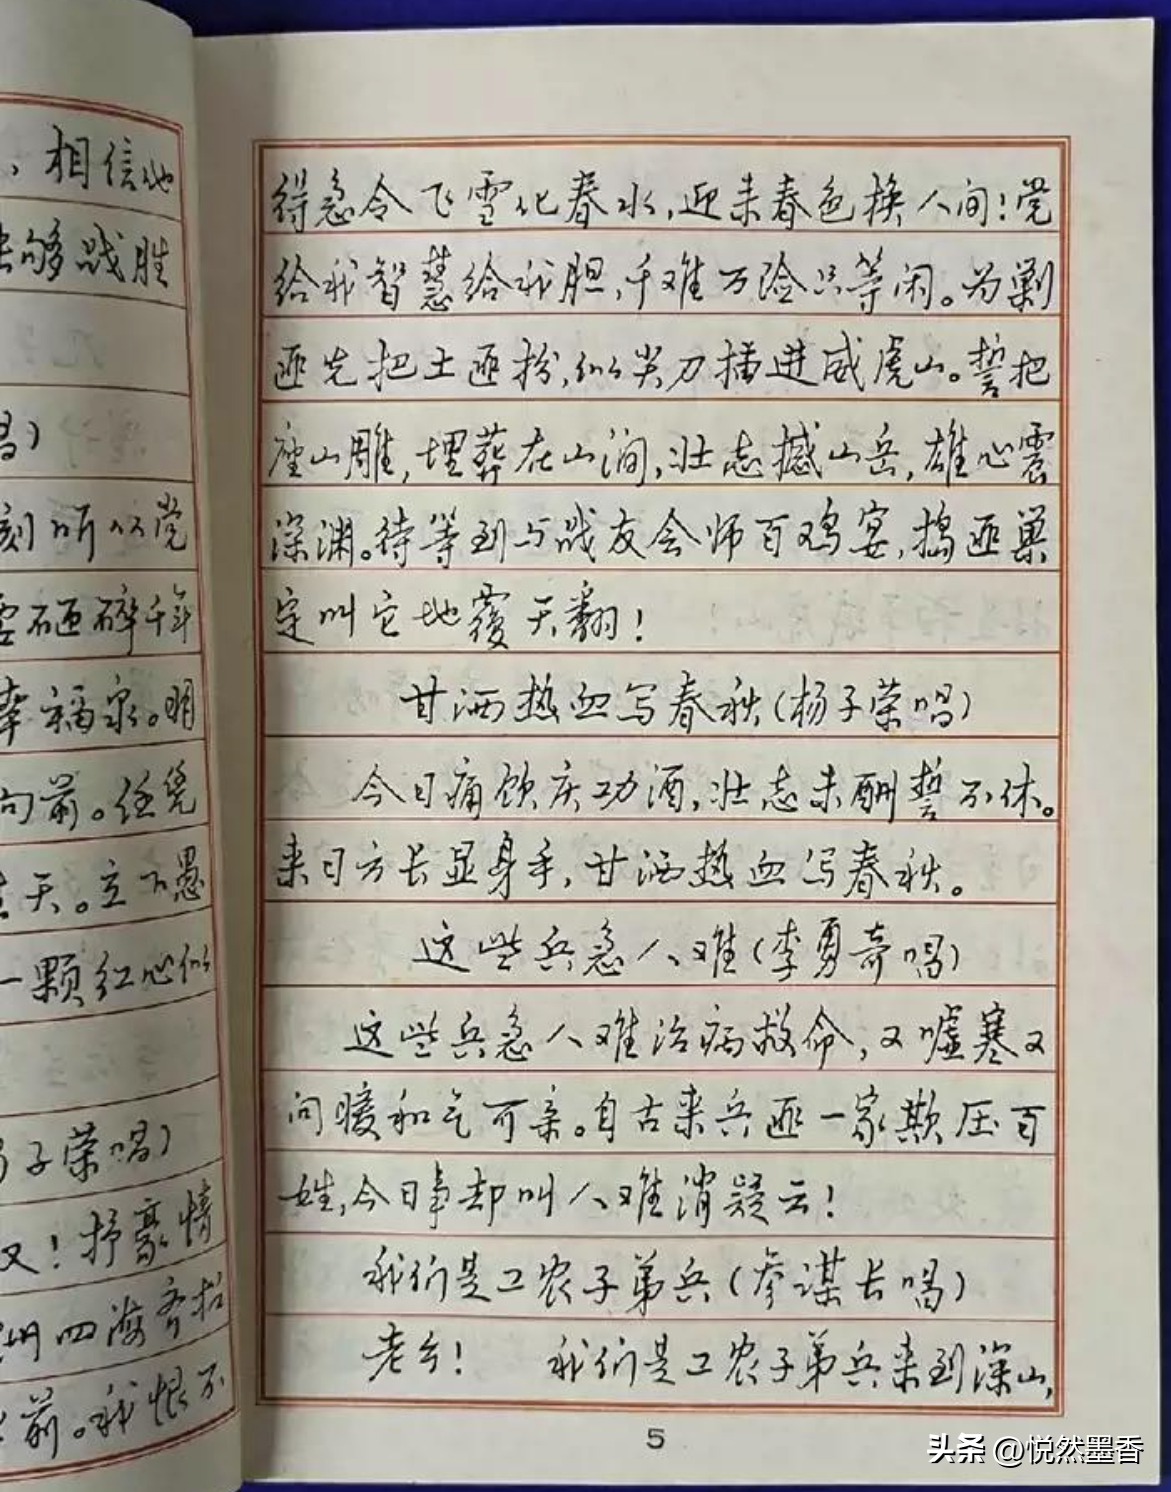 ，相信他
够战胜
唱）
刻听从党
砸碎千年
幸福泉。明
向前。任凭
天。立下愚
一颗红心似
子荣唱）
！抒豪情
四海齐招
前。我恨不
得急令飞雪化春水，迎来春色换人间！党
给我智慧给我胆，千难万险只等闲。为剿
匪先把土匪扮，似尖刀插进威虎山。誓把
座山雕，埋葬在山涧，壮志撼山岳，雄心震
深渊。待等到与战友会师百鸡宴，捣匪巢
定叫它地覆天翻！
甘洒热血写春秋（杨子荣唱）
今日痛饮庆功酒，壮志未酬誓不休。
来日方长显身手，甘洒热血写春秋。
这些兵急人难（李勇奇唱）
这些兵急人难治病救命，又嘘寒又
问暖和气可亲。自古来兵匪一家欺压百
姓，今日事却叫人难消疑云！
我们是工农子弟兵（参谋长唱）
老乡！ 我们是工农子弟兵来到深山，
5
头条 @悦然墨香